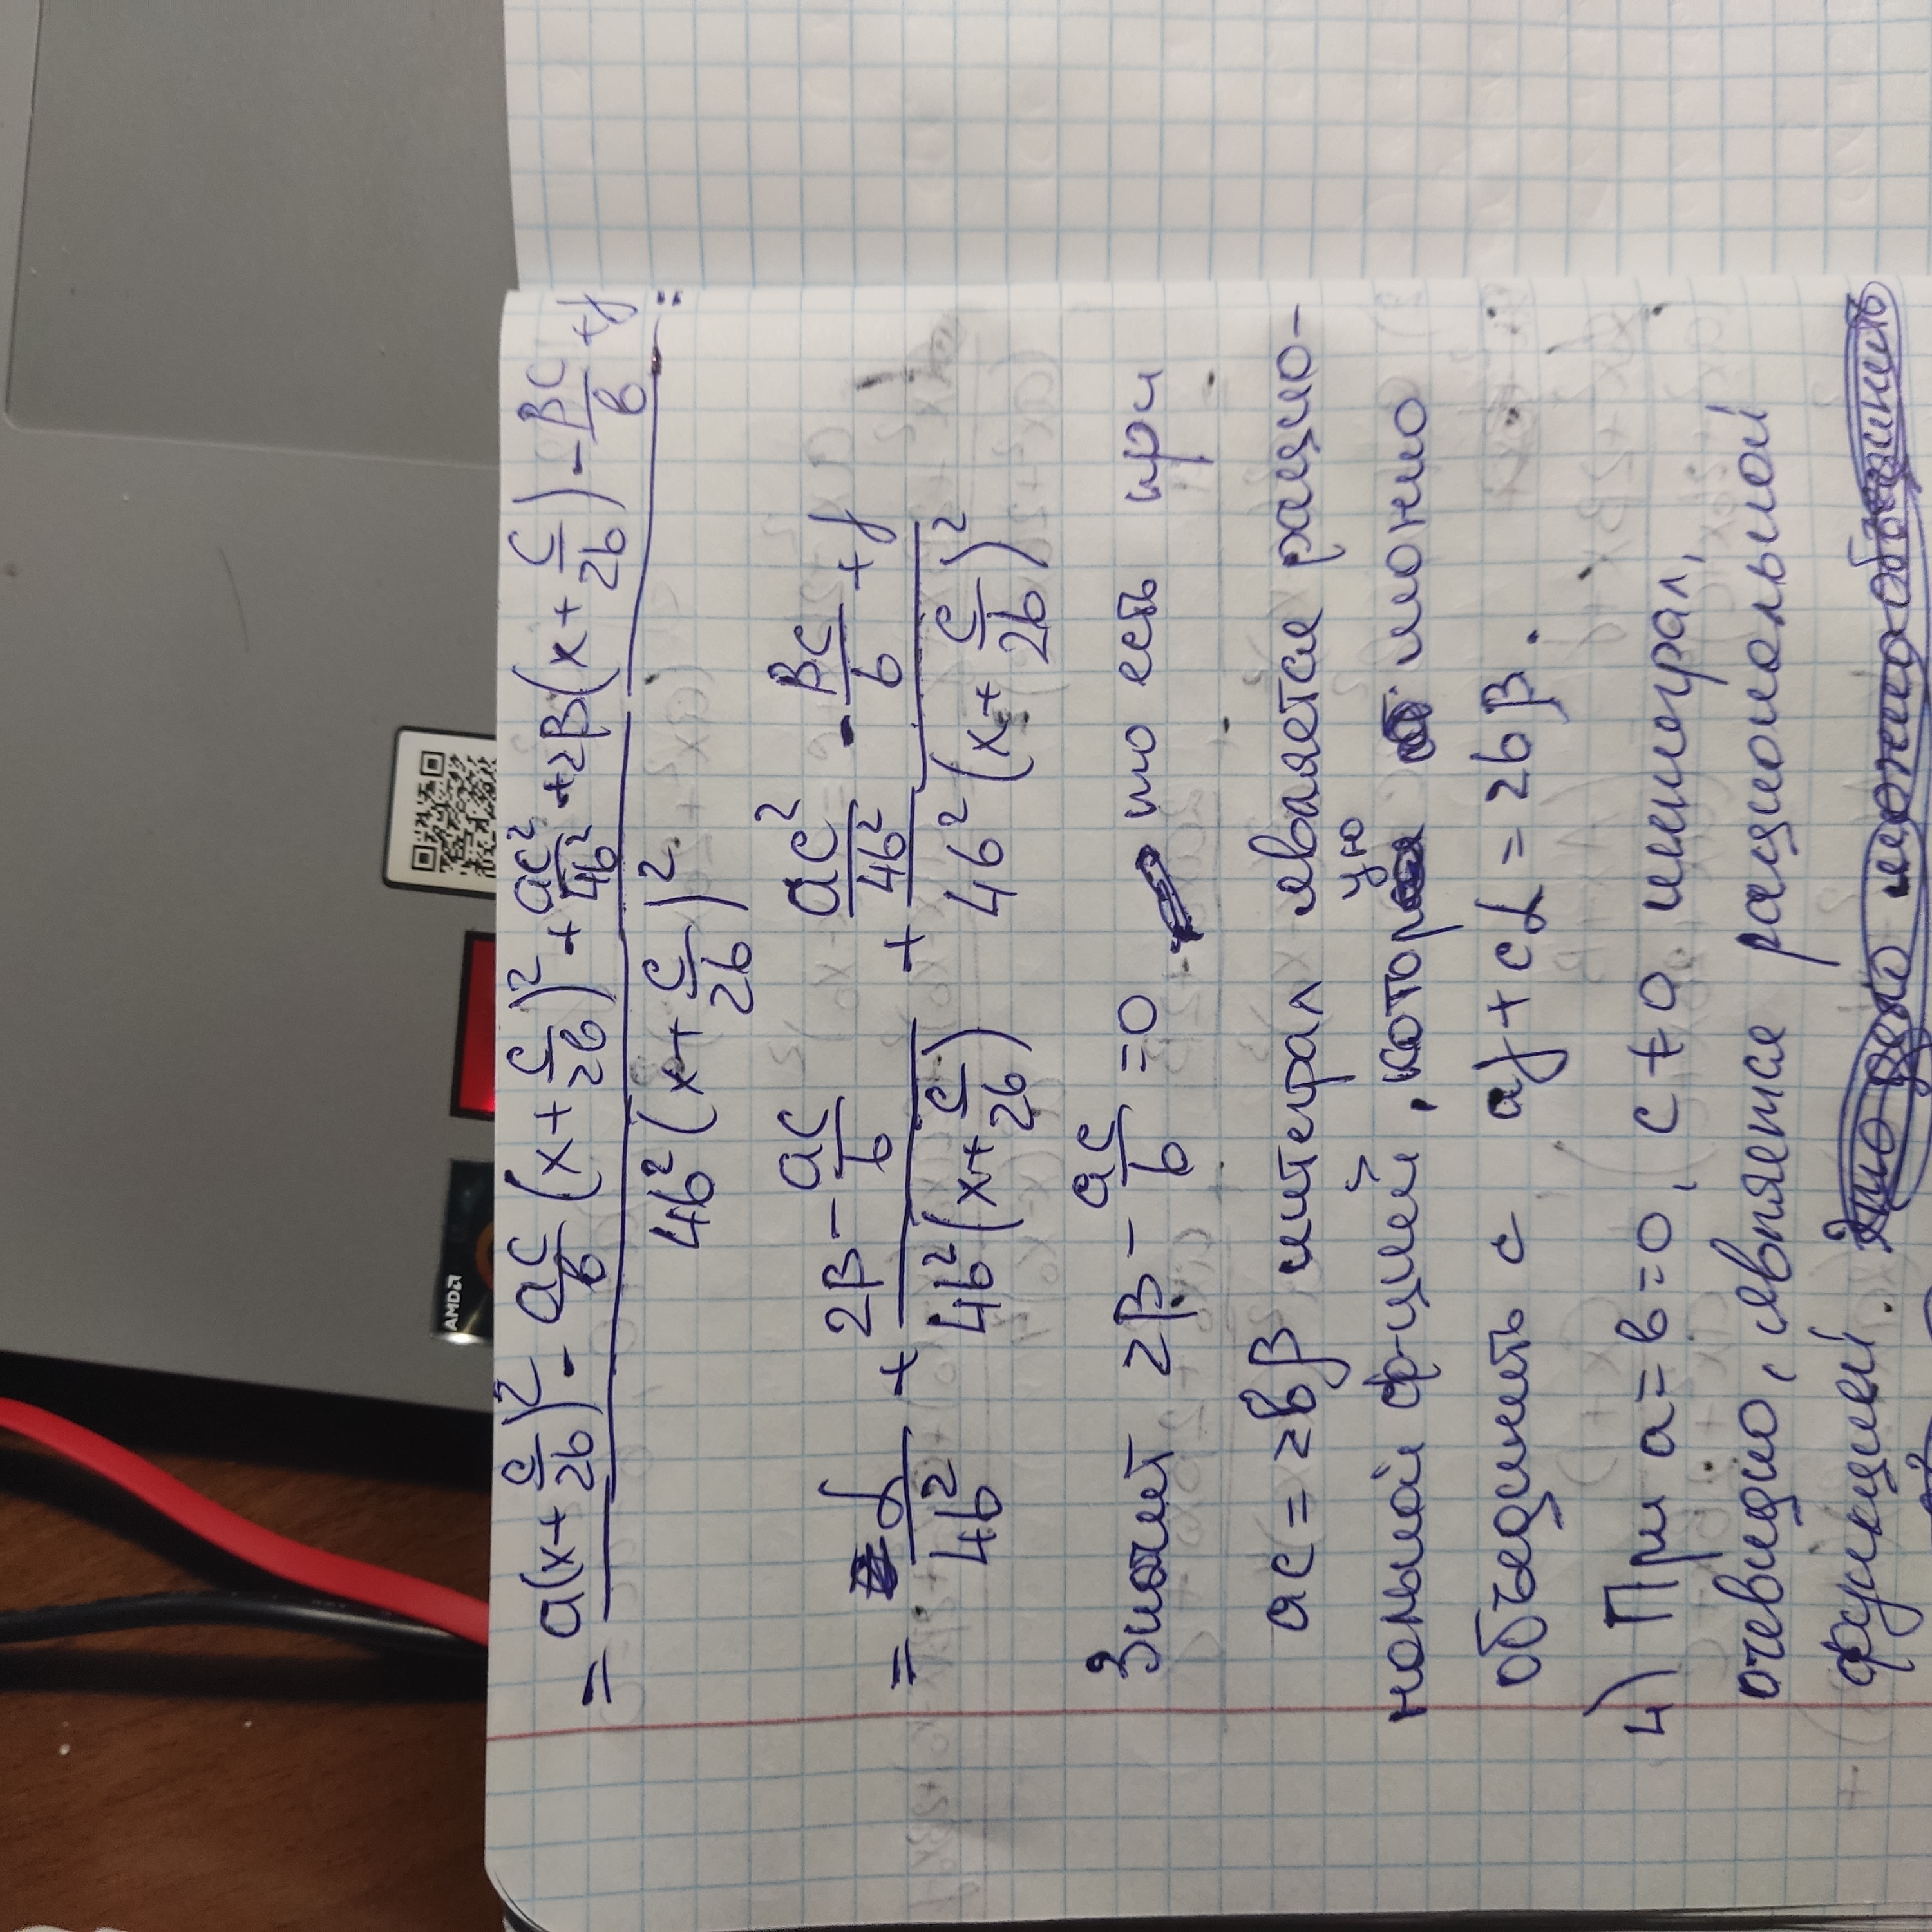 AMD
= (a(x + c/2b)² - ac/b (x + c/2b)² + ac²/4b² + 2β(x + c/2b) - βc/b + γ) / (4b²(x + c/2b)²) =
= α/4b² + (2β - ac/b) / (4b²(x + c/2b)) + (ac²/4b² - βc/b + γ) / (4b²(x + c/2b)²)
Значит 2β - ac/b = 0 то есть при
ac = 2bβ интеграл является рацио-
нальной ф-цией, которую можно
объединить с aγ + cα = 2bβ.
4) При a = b = 0, c ≠ 0 интеграл,
очевидно, является рациональной
функцией.